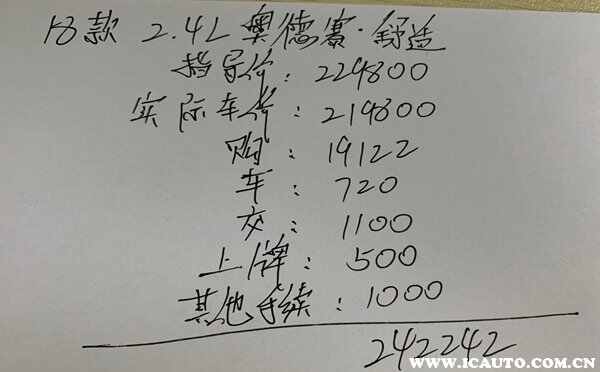 18款 2.4L 奥德赛·舒适
指导价：229800
实际车价：219800
购：19122
车：720
交：1100
上牌：500
其他手续：1000
242242
WWW.ICAUTO.COM.CN